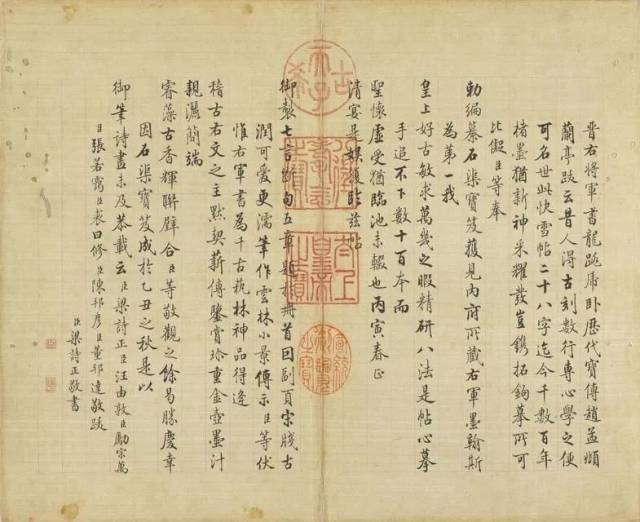 晉右將軍書龍跳虎臥歷代寶傳趙孟頫
蘭亭跋云昔人得古刻數行專心學之便
可名世此快雪帖二十八字迄今千數百年
楮墨猶新神采耀發豈鐫拓鉤摹所可
比儗臣等奉
勅編纂石渠寶笈獲見內府所藏右軍墨翰斯
為第一我
皇上好古敏求萬幾之暇精研八法是帖心摹
手追不下數十百本而
聖懷虛受猶臨池未輟也丙寅春正
清宴是娛復臨茲帖
御製七言斷句五章題於冊首因副頁宋牋古
潤可愛更濡筆作雲林小景傳示臣等伏
惟右軍書為千古藝林神品得逢
稽古右文之主默契薪傳鑒賞珍重金壺墨汁
親灑簡端
睿藻古香輝聯璧合臣等敬觀之餘曷勝慶幸
因石渠寶笈成於乙丑之秋是以
御筆詩畫未及恭載云臣梁詩正臣汪由敦臣勵宗萬
臣張若靄臣裘曰修臣陳邦彥臣董邦達敬跋
臣梁詩正敬書
古希天子
太上皇帝之寶
乾隆御覽之寶